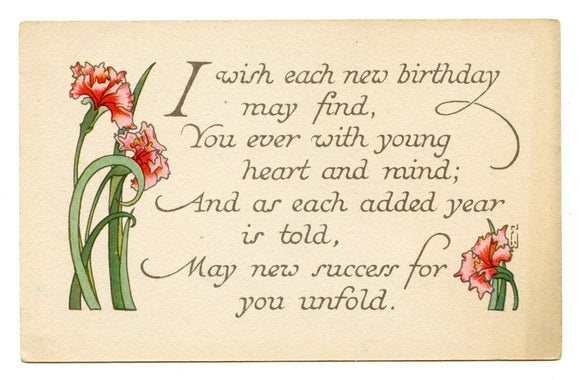 I wish each new birthday
may find,
You ever with young
heart and mind;
And as each added year
is told,
May new success for
you unfold.